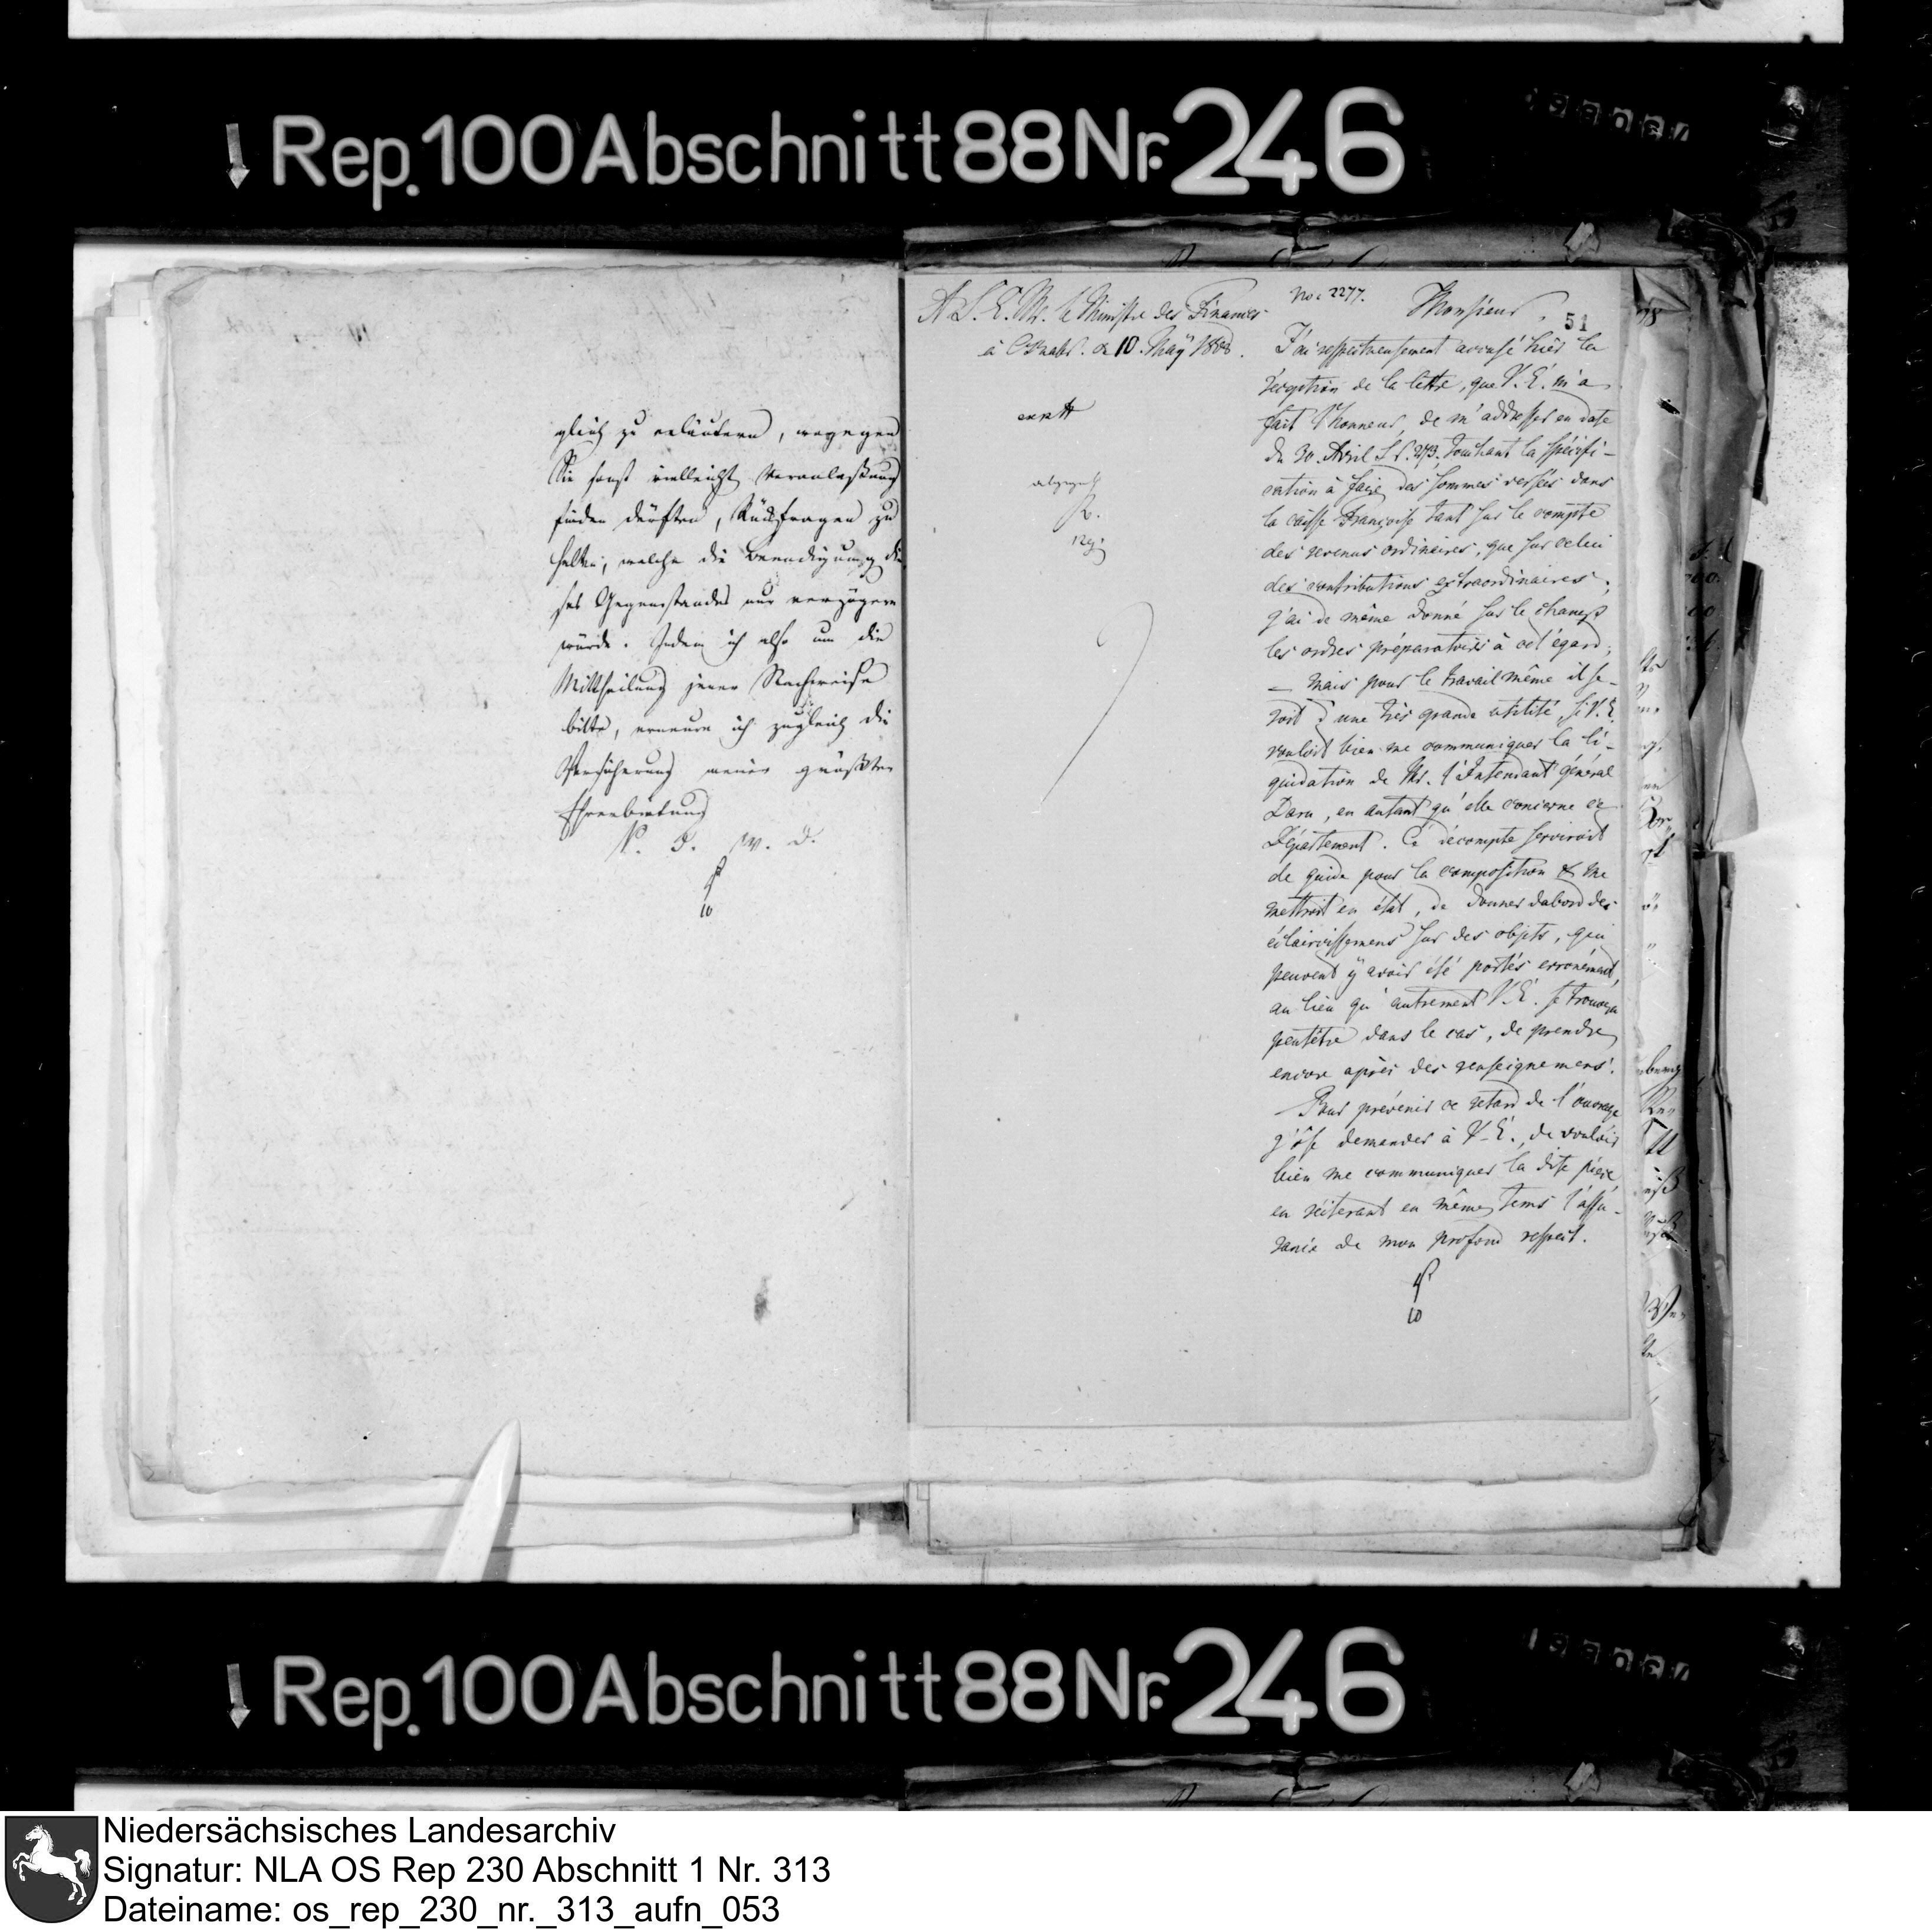 Rep. 100 Abschnitt 88 Nr. 246
gleich zu erläutern, wogegen
Sie sonst vielleicht Veranlaßung
finden dürften, Rückfragen zu
halten, welche die Beendigung die
ses Gegenstandes nur verzögern
würde. Indem ich also um die
Mittheilung jener Nachweise
bitte, erneure ich zugleich die
Versicherung meiner größten
Ehrerbietung
10
A S. E. Mr. le Ministre des Finances
à Osnabr. ce 10. May 1808.
No. 2277.
Monsieur,
51
J'ai respectueusement accusé hier la
réception de la lettre, que V. E. m'a
fait l'honneur, de m'addresser en date
du 30. Avril touchant la spécifi-
cation à faire des sommes versées dans
la caisse françoise tant sur le compte
des revenus ordinaires, que sur celui
des contributions extraordinaires;
j'ai de même donné sur le champ
les ordres préparatoires à cet égard;
— mais pour le travail même il se-
roit d'une très grande utilité, si V. E.
vouloit bien me communiquer la li-
quidation de Mr. l'Intendant général
Daru, en autant qu'elle concerne ce
Département. Ce décompte serviroit
de guide pour la composition & me
mettroit en état, de donner dabord des
éclaircissemens sur des objets, qui
peuvent y avoir été portés erronément,
au lieu qu'autrement V. E. se trouvera
peutêtre dans le cas, de prendre
encore après des renseignemens.
Pour prévenir ce retard de l'ouvrage
j'ose demander à V. E., de vouloir
bien me communiquer la dite pièce
en réiterant en même tems l'assu-
rance de mon profond respect.
10
Rep. 100 Abschnitt 88 Nr. 246
Niedersächsisches Landesarchiv
Signatur: NLA OS Rep 230 Abschnitt 1 Nr. 313
Dateiname: os_rep_230_nr._313_aufn_053